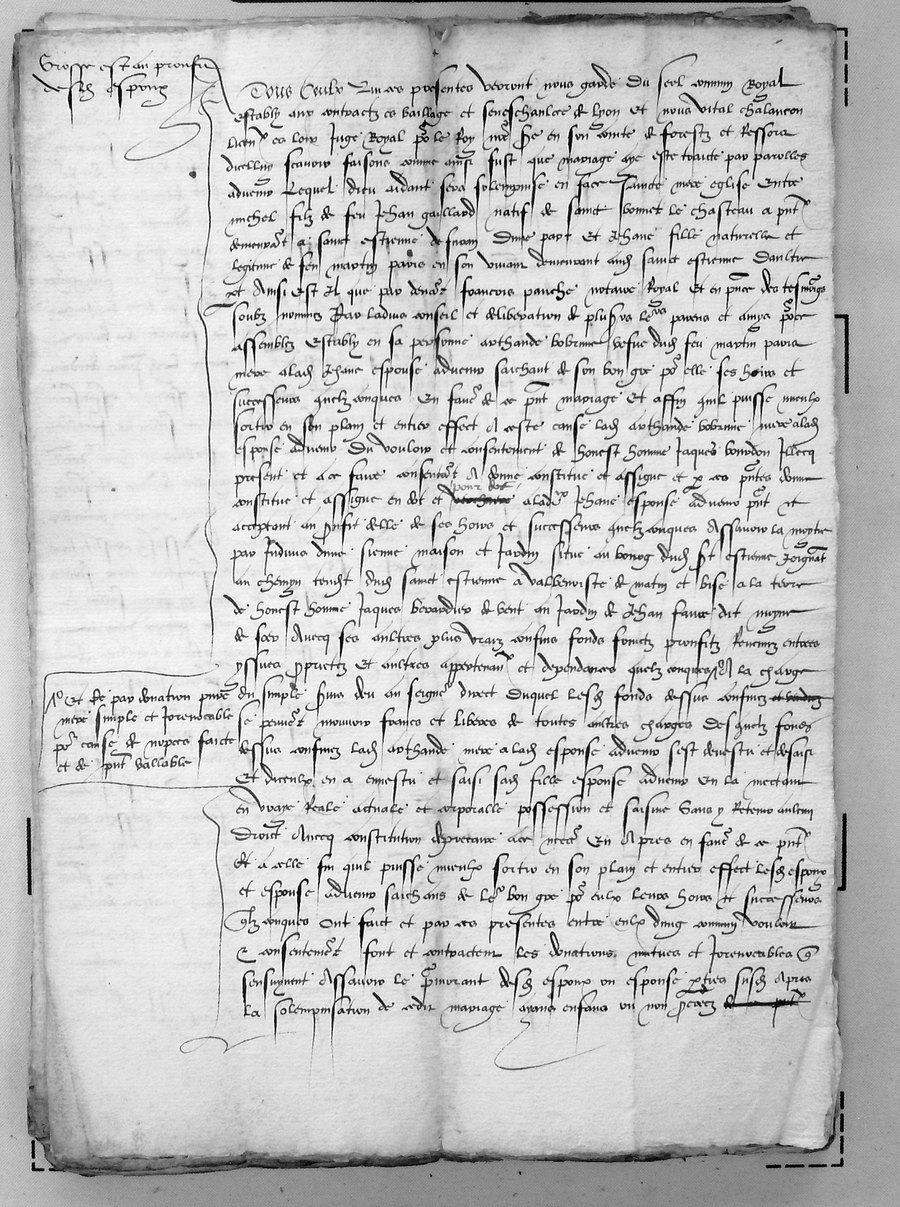 Grosse est au prouffit
desd espoux
A Tous Ceulx qui ces presentes verront nous garde du seel commun Royal
estably aux contractz es bailliage et seneschaulcee de lyon Et nous vital chalancon
licencie es loix Juge Royal po le Roy nre sre en son conte de forestz et Ressort
dicelluy scavoir faisons comme ainsi fust que mariage aye este traicte par parolles
advenir Lequel dieu aidant sera solempnise en face saincte mere eglise Entre
michel filz de feu Jehan gaillard natif de sainct bonnet le chasteau a pnt
demeurant a sainct estienne de furan dune part Et Jehane fille naturelle et
legitime de feu martin paris en son vivant demeurant aud sainct estienne daultre
et Ainsi Est Il que par devant francois panche notaire Royal Et en pnce des tesmoings
soubz nommez Par ladvis conseil et deliberation de plusrs leurs parens et amys po ce
assemblez Estably en sa personne anthande bobrune vefve dud feu martin paris
mere a lad Jhane espouse advenir saichant de son bon gre po elle ses hoirs et
successeurs quelzconques En faver de ce pnt mariage Et affin quil puisse mieulx
sortir en son plain et entier effect A ceste cause lad anthande bobrune mere a lad
espouse advenir Du vouloir et consentement de honest homme Jaques bourdon Illecq
present et a ce faire consentant A donne constitue et assigne et p ces pntes donne
constitue et assigne en dot et pour dot a lade Jehane espouse advenir pnt et
acceptant au proufit delle de ses hoirs et successeurs quelzconques Assavoir la moytie
par Indivis dune sienne maison et Jardin situe au bourg dud st estienne Joignant
au chemyn tendt dud sainct estienne a valbenoiste de matin et bise a la terre
de honest homme Jaques berardier de vent au Jardin de Jehan faure dit
de soir Avecq ses aultres plus vrays confins fonds fruictz proufitz Revenuz entrees
yssues proprietez Et aultres appertenances et deppendances quelzconques A la charge
Et ce par donation pure
mere simple et Irrevocable
po cause de nopces faicte
et de pnt vallable
du simple deu au seigneur direct duquel lesd fonds dessus confinez
se peuvent mouvoir francs et liberes de toutes aultres charges Desquelz fonds
dessus confinez lad anthande mere a lad espouse advenir sest devestu et desaisi
Et diceulx en a investu et saisi sad fille espouse advenir En la mectant
en vraye reale actuale et corporalle possession et saisine Sans y Retenir aulcun
Droict Avecq constitution de precaire Et Apres en faver de ce pnt
Et a celle fin quil puisse mieulx sortir en son plain et entier effect lesd espoux
et espouse advenir saichans de ler bon gre po eulx leurs hoirs et successeurs
qlzconques Ont faict et par ces presentes entre eulx dung commun vouloir
& consentement font et contractent les donations mutues et Irrevocables q
sensuyvent Assavoir le pmorant desd espoux ou espouse susd Apres
la solempnisation de cedit mariage ayans enfans ou non procreez